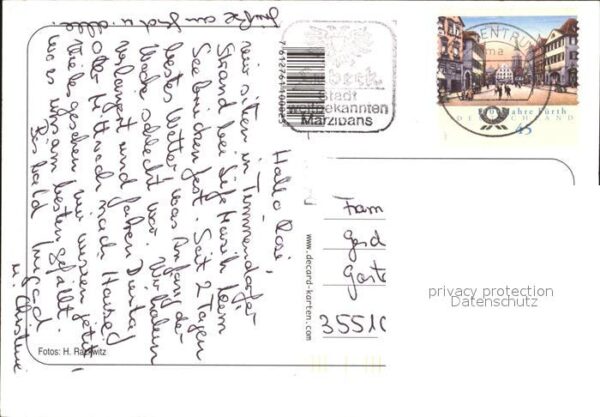 Grüße an Gerd u. alle.
Hallo Rosi,
wir sitzen in Timmendorfer
Strand bei Life Musik beim
Seebrückenfest. Seit 2 Tagen
bestes Wetter was Anfang der
Woche schlecht war. Wir haben
verlängert und fahren Dienstag
oder Mittwoch nach Hause.
Vieles gesehen, wir wissen jetzt
wo es uns am besten gefällt.
Bis bald Irmgard
u. Christine
Fotos: H. Rackwitz
www.decard-karten.com
beck.
Stadt
weltbekannten
Marzipans
ENTRUM
Jahre Fürth
DEUTSCHLAND
45
Fam
Gerd
Garte
35510
privacy protection
Datenschutz